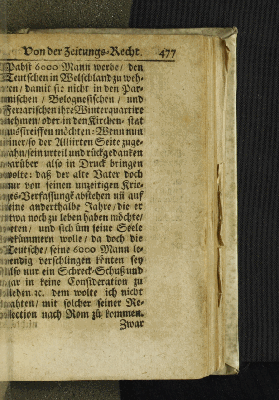 Von der Zeitungs-Recht. 477
Pabst 6000 Mann werbe / den
Teutschen in Welschland zu weh-
ren / damit sie nicht in den Par-
mischen / Bolognesischen / und
Ferrarischen ihre Winterquartire
nehmen / oder in den Kirchen-stat
ausstreiffen möchten: Wenn nun
einer / so der Alliirten Seite zuge-
than / sein urteil und rückgedanken
darüber also in Druck bringen
wolte: daß der alte Vater doch
nur von seinen unzeitigen Krie-
ges-Verfassung abstehen uñ auf
seine anderthalbe Jahre / die er
etwa noch zu leben haben möchte /
beten / und sich üm seine Seele
bekümmern wolle / da doch die
Teutsche / seine 6000 Mann le-
bendig verschlingen könten sey
also nur ein Schreck-Schuß und
gar in keine Consideration zu
ziehen ꝛc. dem wolte ich nicht
rahten / mit solcher seiner Re-
flection nach Rom zu kommen.
Zwar